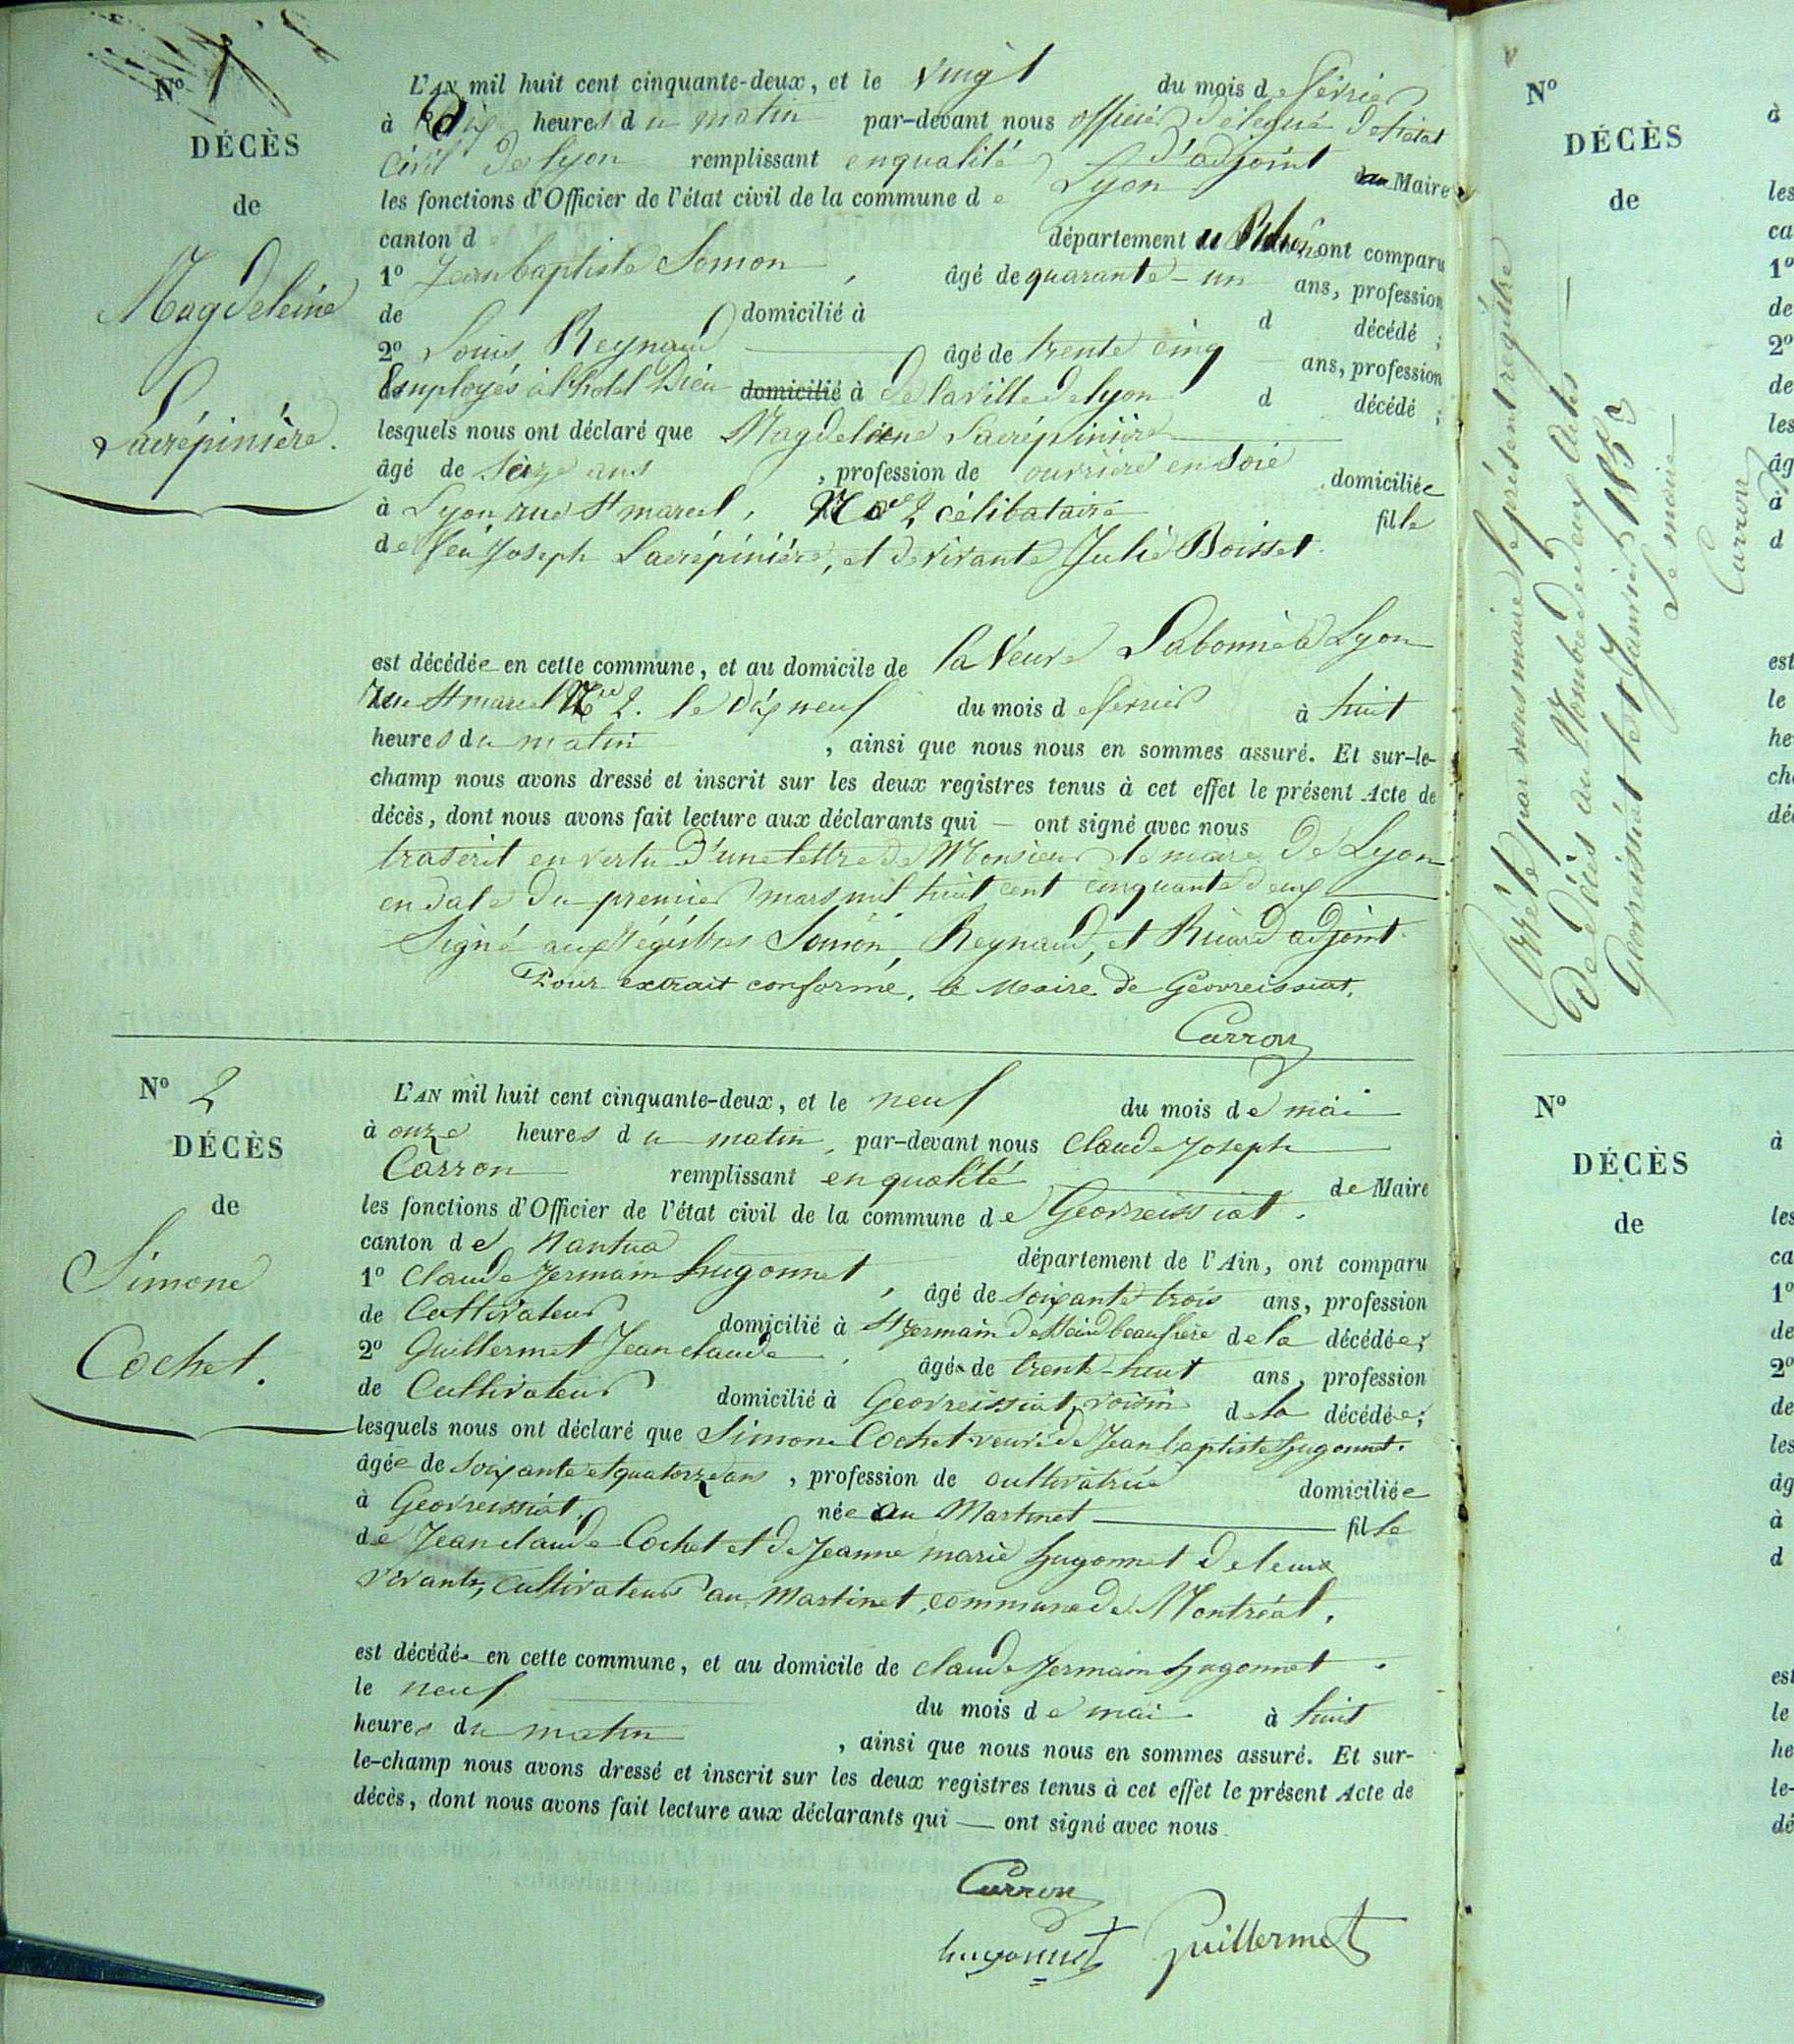 N° 1
DÉCÈS
de
Magdeleine
Lacrépinière.
L'AN mil huit cent cinquante-deux, et le vingt du mois de février
à Dix heures du matin par-devant nous officier délégué de l'état
civil de lyon remplissant en qualité d'adjoint du Maire
les fonctions d'Officier de l'état civil de la commune de Lyon
canton d département du Rhône ont comparu
1° Jean baptiste Somon, âgé de quarante-un ans, profession
de domicilié à d décédé ;
2° Louis Reynaud âgé de trente cinq ans, profession
d'employés à l'hotel Dieu domicilié à de la ville de lyon d décédé ;
lesquels nous ont déclaré que Magdeleine Lacrépinière
âgé de Seize ans, profession de ouvrière en soie domiciliée
à Lyon, rue St marcel, No 2 célibataire fille
de feu Joseph Lacrépinière, et de vivante Julie Boisset.
est décédée en cette commune, et au domicile de la Veuve Labonne à Lyon
rue St marcel No 2. le Dix neuf du mois de février à huit
heures du matin, ainsi que nous nous en sommes assuré. Et sur-le-
champ nous avons dressé et inscrit sur les deux registres tenus à cet effet le présent Acte de
décès, dont nous avons fait lecture aux déclarants qui — ont signé avec nous
trascrit en vertu d'une lettre de Monsieur le maire de Lyon
en date du premier mars mil huit cent cinquante deux
Signé aux Régistres Somon, Reynaud, et Ricard adjoint.
Pour extrait conforme, le Maire de Géovreissiat.
Carron
N° 2
DÉCÈS
de
Simone
Cochet.
L'AN mil huit cent cinquante-deux, et le neuf du mois de mai
à onze heures du matin, par-devant nous Claude Joseph
Carron remplissant en qualité de Maire
les fonctions d'Officier de l'état civil de la commune de Géovreissiat.
canton de Nantua département de l'Ain, ont comparu
1° Claude Jermain hugonnet, âgé de soixante trois ans, profession
de Cultivateur domicilié à St jermain de beaufrère de la décédée ;
2° Guillermet Jean claude, âgé de trente-huit ans, profession
de Cultivateur domicilié à Géovreissiat, voisin de la décédée ;
lesquels nous ont déclaré que Simone Cochet veuve de Jean baptiste hugonnet.
âgée de soixante et quatorze ans, profession de cultivatrice domiciliée
à Géovreissiat. née au Martinet fille
de Jean claude Cochet et de Jeanne marie hugonnet de leur
vivants, Cultivateurs au Martinet, commune de Montréal.
est décédée en cette commune, et au domicile de claude Jermain hugonnet.
le neuf du mois de mai à huit
heures du matin, ainsi que nous nous en sommes assuré. Et sur-
le-champ nous avons dressé et inscrit sur les deux registres tenus à cet effet le présent Acte de
décès, dont nous avons fait lecture aux déclarants qui — ont signé avec nous
Carron
hugonnet Guillermet
Arrêté par nous maire le présent régistre
de décès au Nombre de deux Actes
Géovreissiat le 1er Janvier 1853
Le maire
Carron
N°
DÉCÈS
de
à
les
ca
1°
de
2°
de
les
âg
à
d
est
le
he
ch
dé
N°
DÉCÈS
de
à
les
ca
1°
de
2°
de
les
âg
à
d
est
le
he
le-
dé